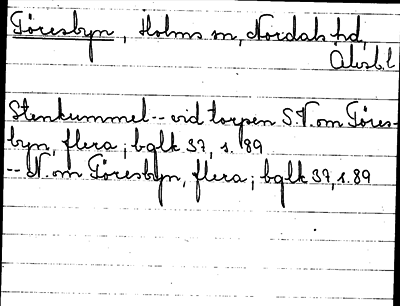 Göresbyn, Holms sn, Nordals hd,
Älvsb.l
Stenkummel -- vid torpen S.V. om Göres-
byn, flera; bglk 37, s. 89
-- N. om Göresbyn, flera; bglk 37, s. 89